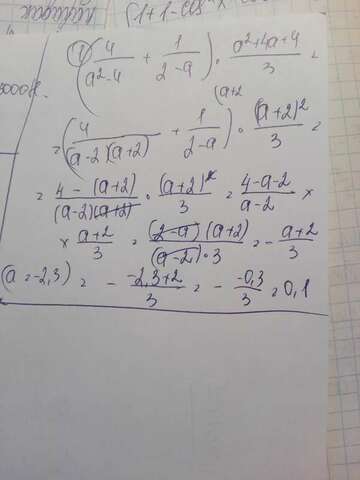 1) (4/(a²-4) + 1/(2-a)) · (a²+4a+4)/3 =
(a+2
= (4/((a-2)(a+2)) + 1/(2-a)) · (a+2)²/3 =
= (4-(a+2))/((a-2)(a+2)) · (a+2)²/3 = (4-a-2)/(a-2) ×
× (a+2)/3 = ((2-a)(a+2))/((a-2)·3) = -(a+2)/3
(a=-2,3) = - (-2,3+2)/3 = - (-0,3)/3 = 0,1